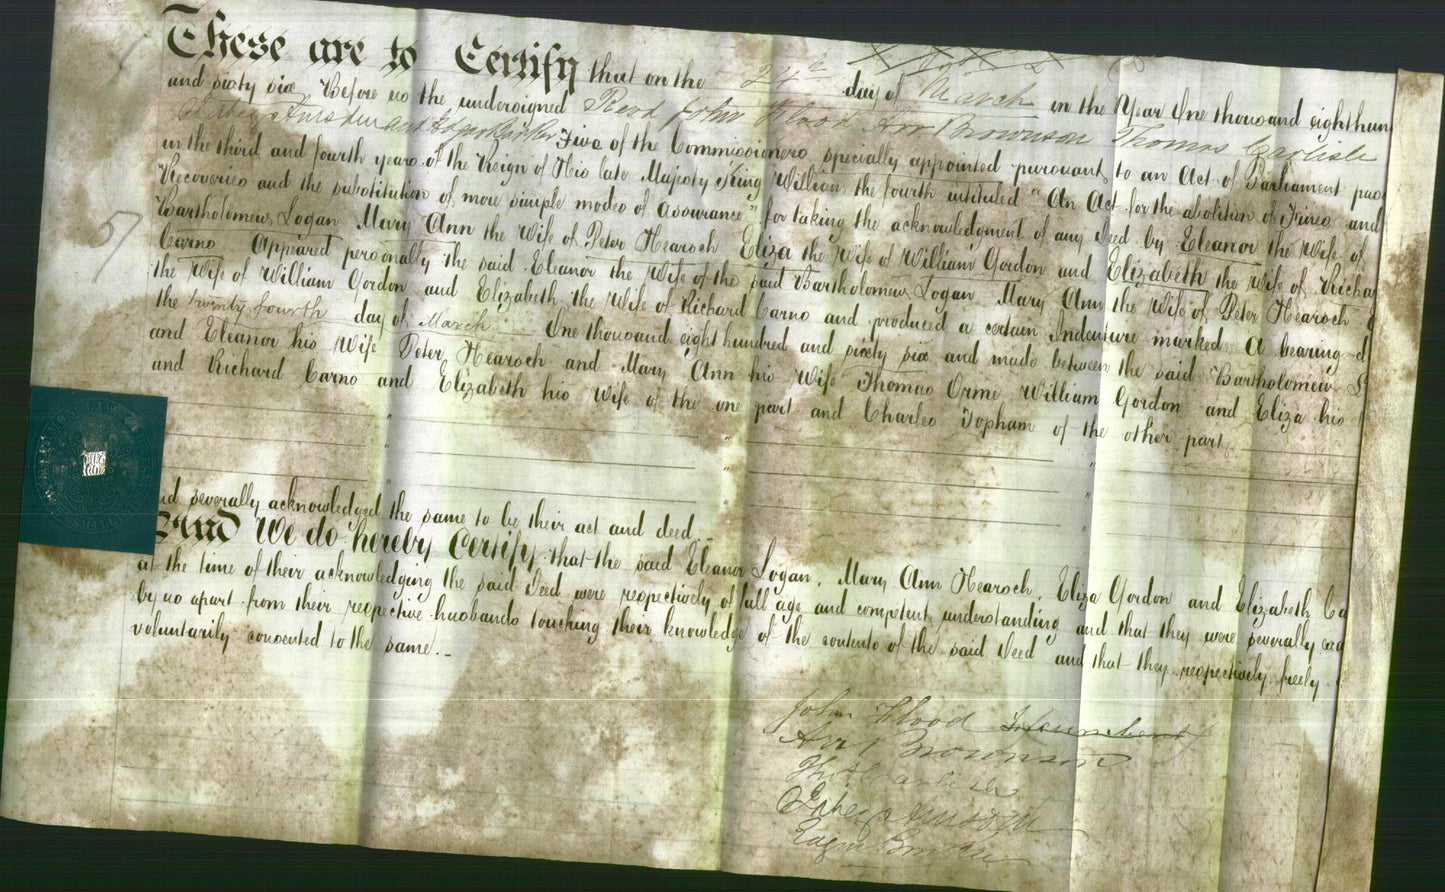 These are to Certify that on the 24th day of March in the Year One thousand eight hun
and sixty six Before us the undersigned Revd John Flood Arr Brownson Thomas Carlisle
and Five of the Commissioners specially appointed pursuant to an Act of Parliament pas
in the third and fourth years of the Reign of His late Majesty King William the fourth intituled "An Act for the abolition of Fines and
Recoveries and the substitution of more simple modes of assurance" for taking the acknowledgment of any Deed by Eleanor the Wife of
Bartholomew Logan Mary Ann the Wife of Peter Hearsch Eliza the Wife of William Gordon and Elizabeth the Wife of Richa
Carno Appeared personally the said Eleanor the Wife of the said Bartholomew Logan Mary Ann the Wife of Peter Hearsch E
the Wife of William Gordon and Elizabeth the Wife of Richard Carno and produced a certain Indenture marked A bearing d
the twenty fourth day of March One thousand eight hundred and sixty six and made between the said Bartholomew L
and Eleanor his Wife Peter Hearsch and Mary Ann his Wife Thomas Orme William Gordon and Eliza his
and Richard Carno and Elizabeth his Wife of the one part and Charles Topham of the other part
57
nd severally acknowledged the same to be their act and deed.-
And We do hereby Certify that the said Eleanor Logan, Mary Ann Hearsch, Eliza Gordon and Elizabeth Ca
at the time of their acknowledging the said Deed were respectively of full age and competent understanding and that they were severally exa
by us apart from their respective husbands touching their knowledge of the contents of the said Deed and that they respectively freely
voluntarily consented to the same.-
John Flood Incumbent
Arr Brownson
Thos Carlisle